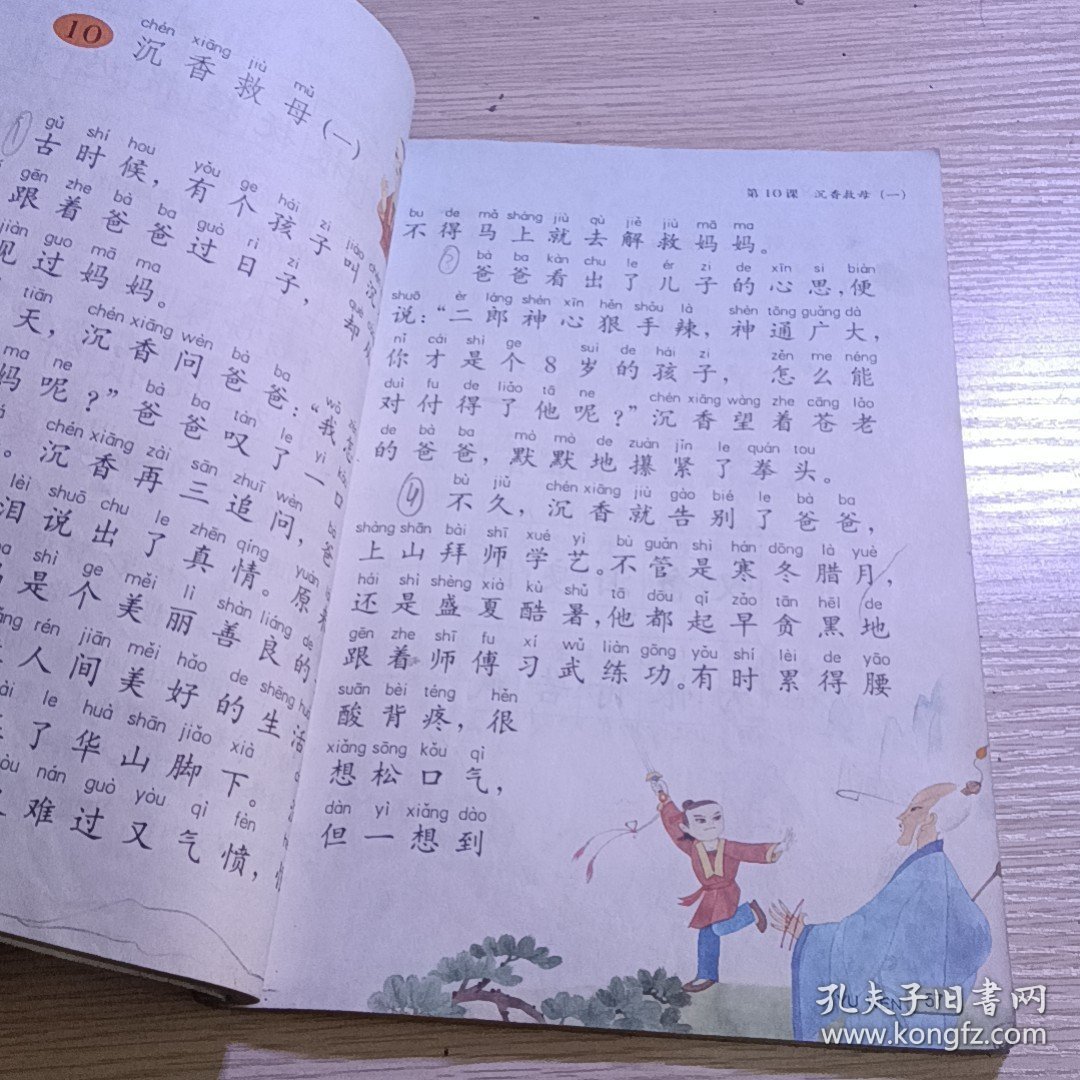 10
chén xiāng jiù mǔ
沉香救母(一)
gǔ shí hou yǒu ge hái zi jiào
古时候,有个孩子叫沉
gēn zhe bà ba guò rì zi
跟着爸爸过日子,却
jiàn guo mā ma
见过妈妈。
tiān chén xiāng wèn bà ba wǒ
天,沉香问爸爸:“我
ma ne bà ba tàn le yì
妈呢?”爸爸叹了一口
chén xiāng zài sān zhuī wèn bà
。沉香再三追问,爸
lèi shuō chu le zhēn qíng yuán
泪说出了真情。原来
shì ge měi lì shàn liáng de
是个美丽善良的
rén jiān měi hǎo de shēng huó
人间美好的生活
le huà shān jiǎo xià
了华山脚下。
nán guò yòu qì fèn
难过又气愤,
第10课 沉香救母(一)
bu de mǎ shàng jiù qù jiě jiù mā ma
不得马上就去解救妈妈。
bà ba kàn chu le ér zi de xīn si biàn
爸爸看出了儿子的心思,便
shuō èr láng shén xīn hěn shǒu là shén tōng guǎng dà
说:“二郎神心狠手辣,神通广大,
nǐ cái shì ge suì de hái zi zěn me néng
你才是个8岁的孩子,怎么能
duì fu de liǎo tā ne chén xiāng wàng zhe cāng lǎo
对付得了他呢?”沉香望着苍老
de bà ba mò mò de zuàn jǐn le quán tou
的爸爸,默默地攥紧了拳头。
④
bù jiǔ chén xiāng jiù gào bié le bà ba
不久,沉香就告别了爸爸,
shàng shān bài shī xué yì bù guǎn shì hán dōng là yuè
上山拜师学艺。不管是寒冬腊月,
hái shì shèng xià kù shǔ tā dōu qǐ zǎo tān hēi de
还是盛夏酷暑,他都起早贪黑地
gēn zhe shī fu xí wǔ liàn gōng yǒu shí lèi de yāo
跟着师傅习武练功。有时累得腰
suān bèi téng hěn
酸背疼,很
xiǎng sōng kǒu qì
想松口气,
dàn yì xiǎng dào
但一想到
孔夫子旧书网
www.kongfz.com